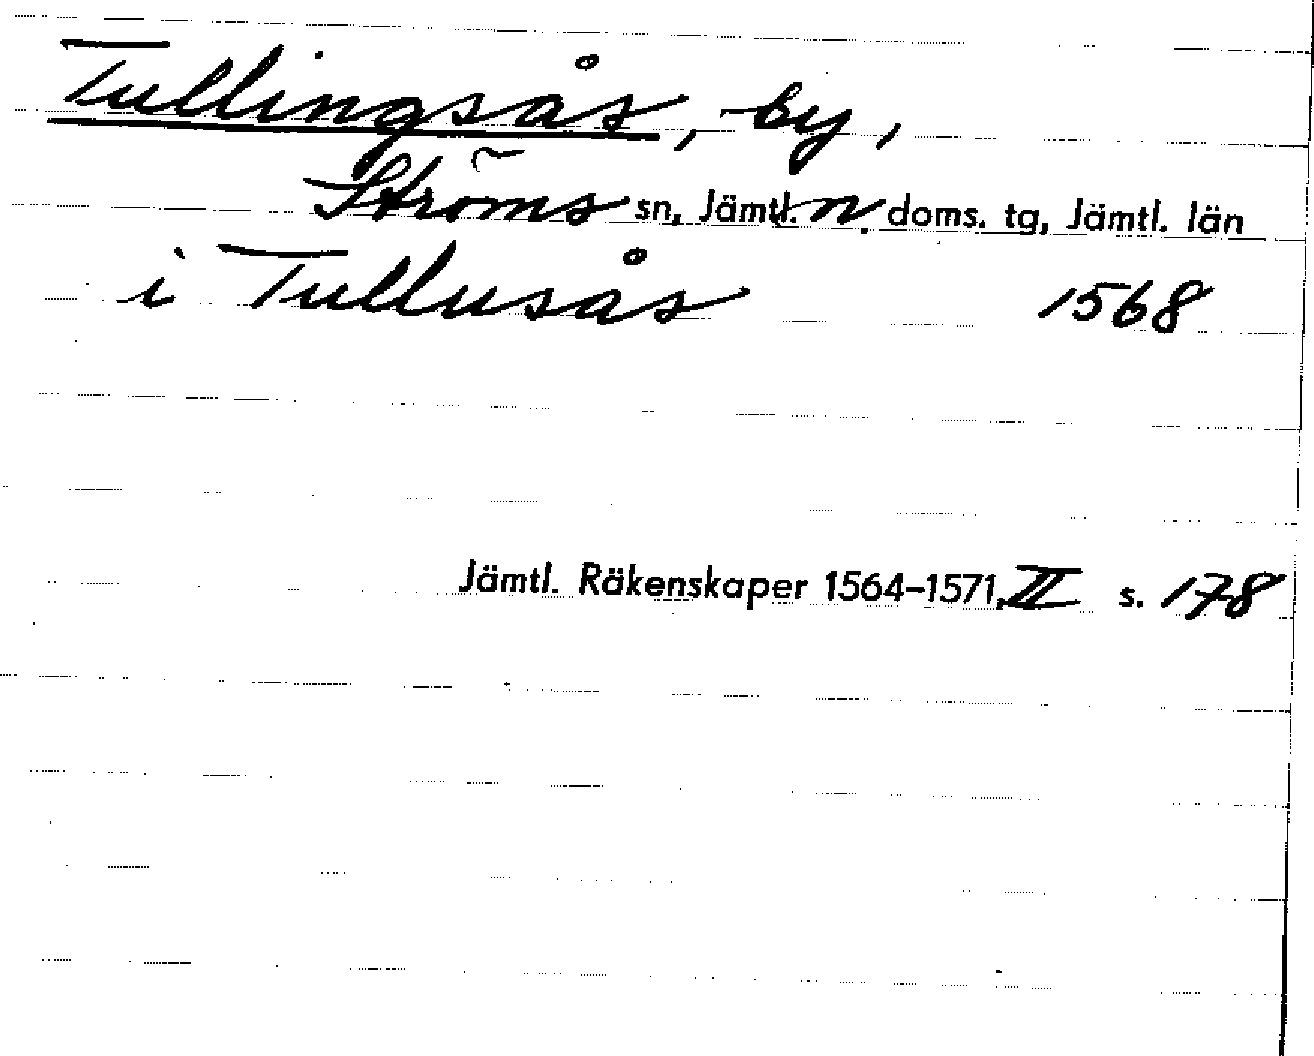 Tullingsås, by,
Ströms sn, Jämtl. n. doms. tg, Jämtl. län
i Tullusås 1568
Jämtl. Räkenskaper 1564–1571, II s. 178